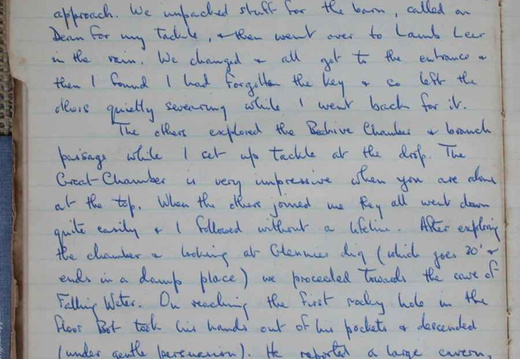 approach. We unpacked stuff for the barn, called on
Dean for my tackle, & then went over to Lamb Leer
in the rain. We changed & all got to the entrance &
then I found I had forgotten the key & so left the
others quietly swearing while I went back for it.
The others explored the Beehive Chamber & branch
passage while I set up tackle at the drop. The
Great Chamber is very impressive when you are alone
at the top. When the others joined me they all went down
quite easily & I followed without a lifeline. After exploring
the chamber & looking at Glennies dig (which goes 20' &
ends in a damp place) we proceeded towards the cave of
Falling Water. On reaching the first rocky hole in the
floor Bert took his hands out of his pockets & descended
(under gentle persuasion). He reported a large cavern,